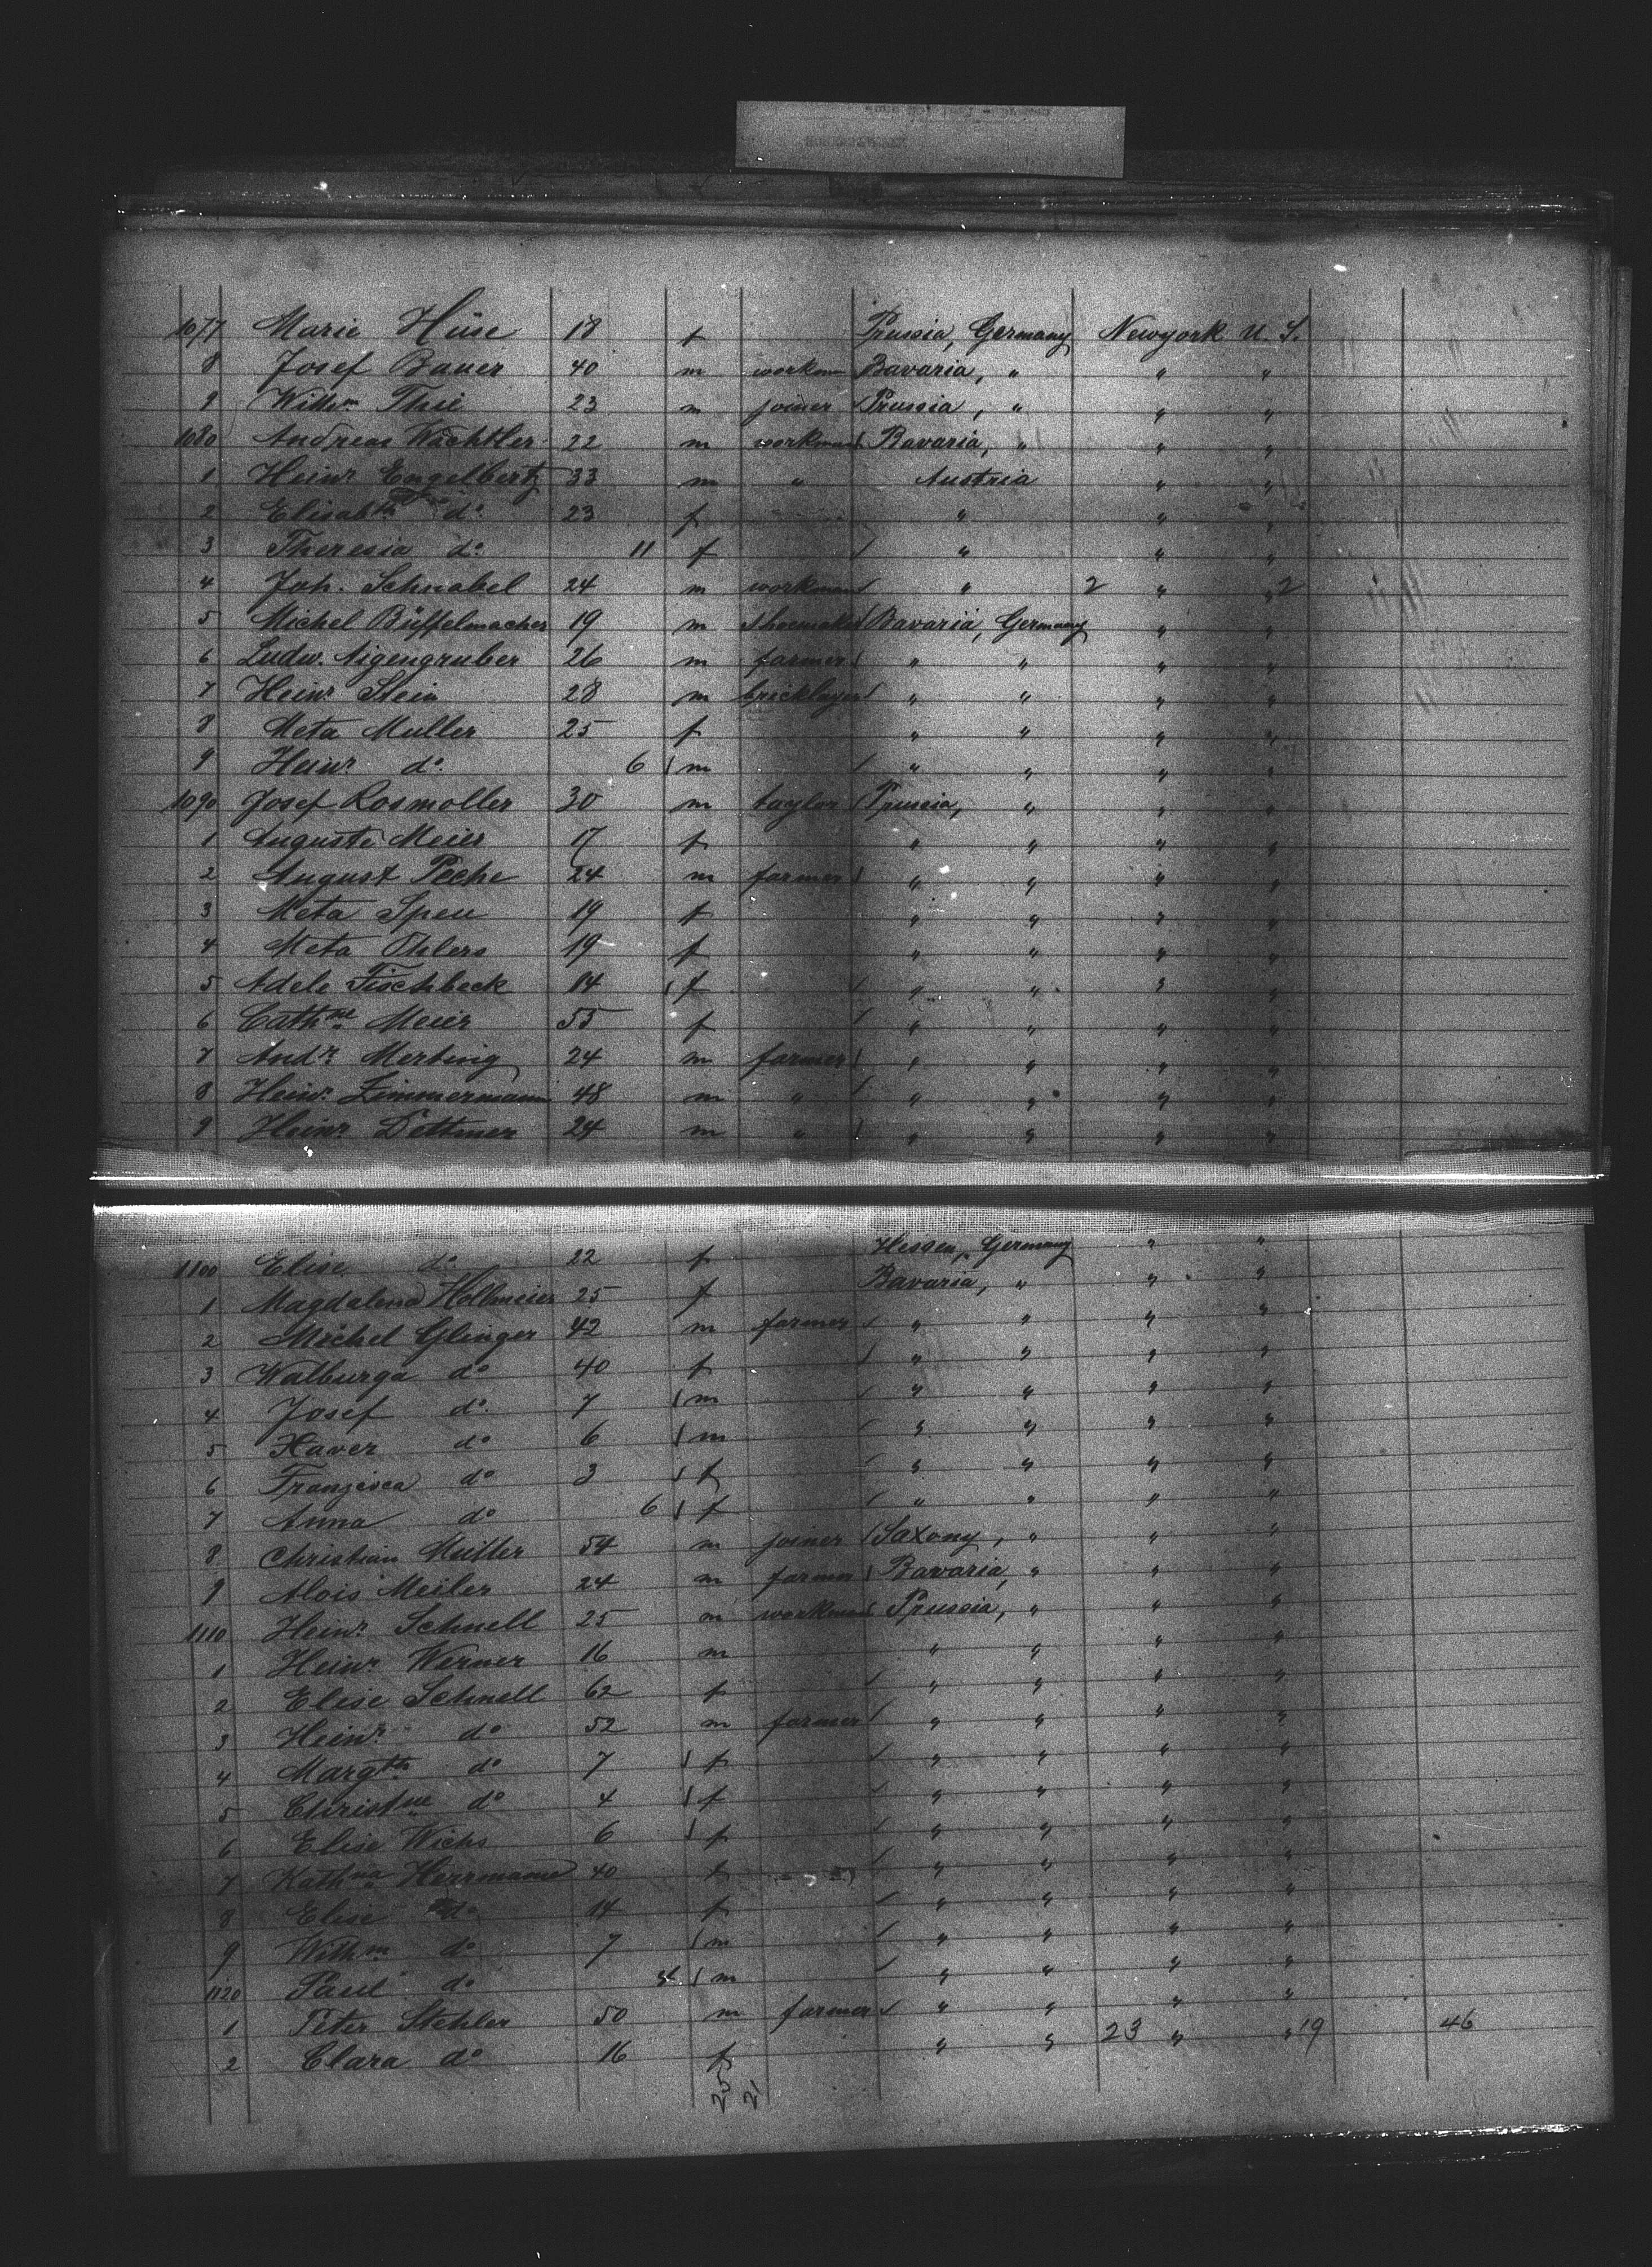 1077 Marie Hüse 18 f Prussia, Germany Newyork U. S.
8 Josef Bauer 40 m workm Bavaria, " " "
9 Willm Thie 23 m joiner Prussia, " " "
1080 Andreas Wächtler 22 m workman Bavaria, " " "
1 Heinr. Engelbertz 33 m " Austria " "
2 Elisabth do. 23 f " " "
3 Theresia do. 11 f " " "
4 Joh. Schnabel 24 m workman " 2 " " 2
5 Michel Büffelmacher 19 m Shoemaker Bavaria, Germany " "
6 Ludw. Aigengruber 26 m farmer " " " "
7 Heinr. Stein 28 m bricklayer " " " "
8 Meta Muller 25 f " " " "
9 Heinr. do. 6 m " " " "
1090 Josef Rosmoller 30 m taylor Prussia, " " "
1 Auguste Meier 17 f " " " "
2 August Peche 24 m farmer " " " "
3 Meta Speu 19 f " " " "
4 Meta Ohlers 19 f " " " "
5 Adele Fischbeck 14 f " " " "
6 Cathne Meier 55 f " " " "
7 Andr. Merting 24 m farmer " " " "
8 Heinr. Zimmermann 48 m " " " " "
9 Heinr. Dettmer 24 m " " " " "
1100 Elise do 22 f Hessen, Germany " "
1 Magdalena Hollmeier 25 f Bavaria, " " "
2 Michel Glinger 42 m farmer " " " "
3 Walburga do 40 f " " " "
4 Josef do. 7 m " " " "
5 Xaver do 6 m " " " "
6 Franzisca do 3 f " " " "
7 Anna do 6 f " " " "
8 Christian Muller 54 m joiner Saxony, " " "
9 Alois Meiler 24 m farmer Bavaria, " " "
1110 Heinr. Schnell 25 m workman Prussia, " " "
1 Heinr. Werner 16 m " " " "
2 Elise Schnell 62 f " " " "
3 Heinr. do 52 m farmer " " " "
4 Margth do 7 f " " " "
5 Christne do 4 f " " " "
6 Elise Wichs 6 f " " " "
7 Kathna Herrmann 40 f " " " "
8 Elise do 14 f " " " "
9 Willm do 7 m " " " "
1120 Paul do m " " " "
1 Peter Stehler 50 m farmer " " " "
2 Clara do 16 f " " 23 " " 19 46
25 21